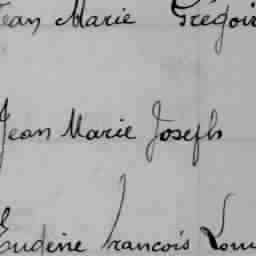 Jean Marie Grégoir
Jean Marie Joseph
Eugène François Loui